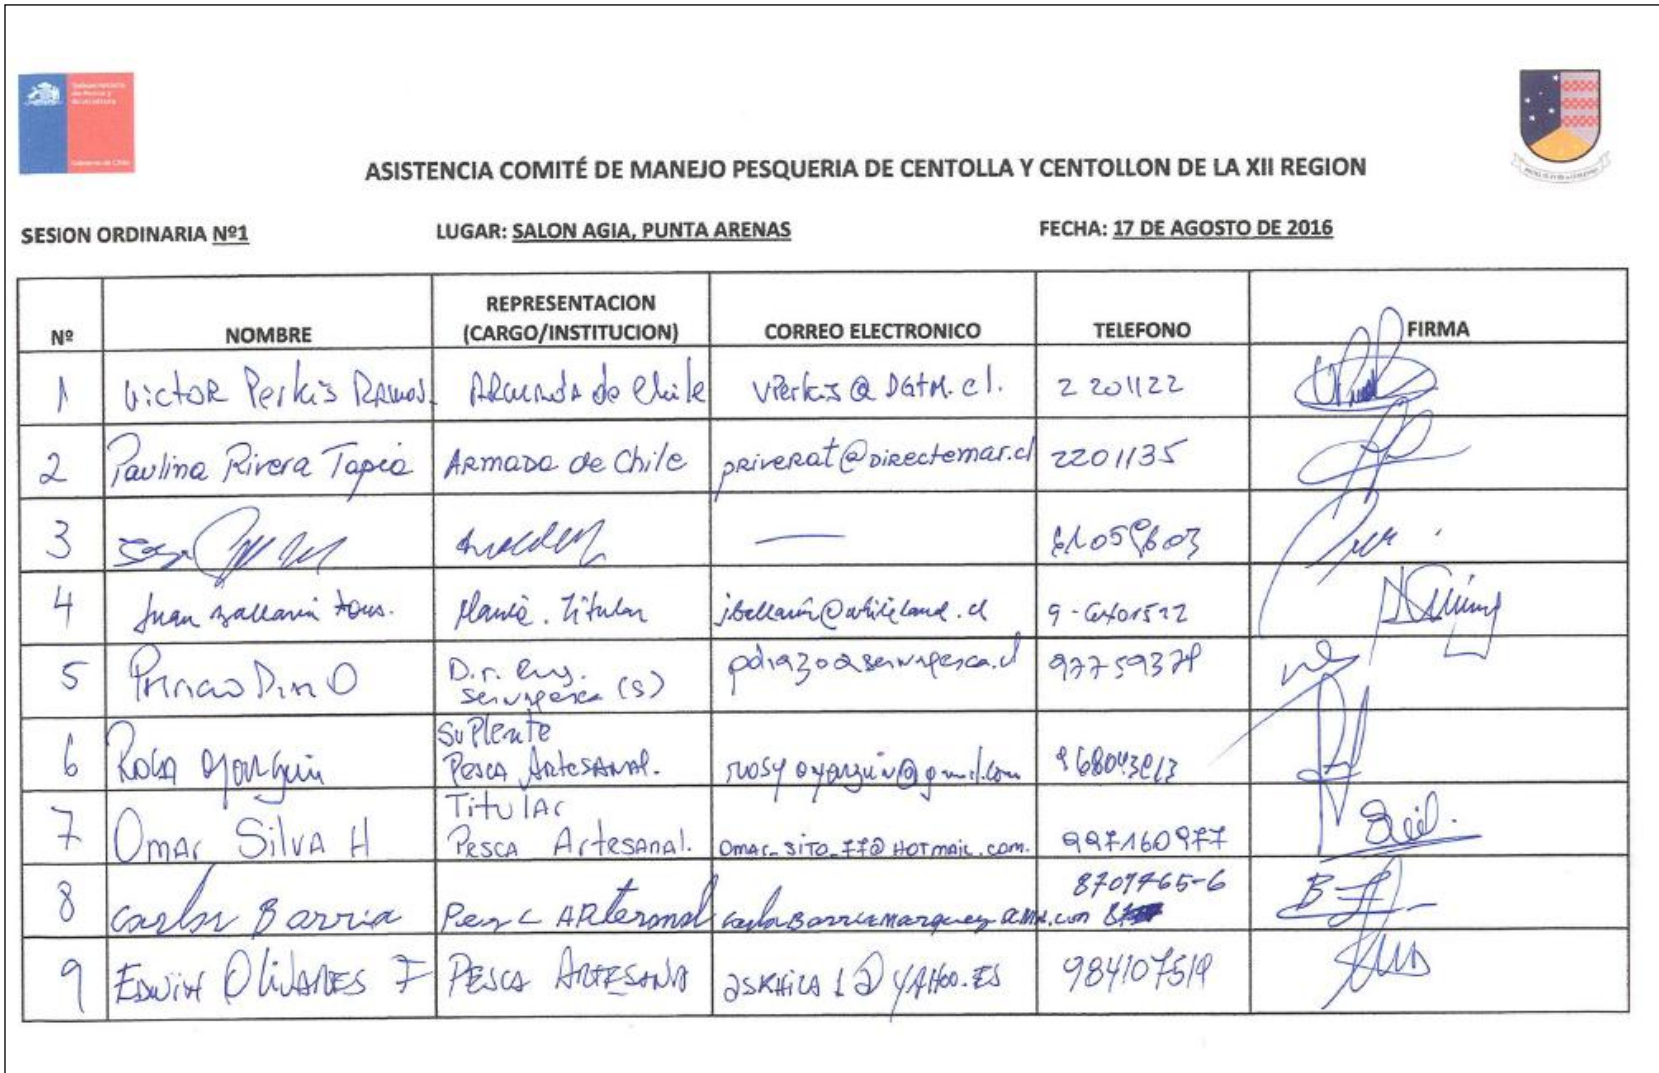 Subsecretaría
de Pesca y
Acuicultura
Gobierno de Chile
ASISTENCIA COMITÉ DE MANEJO PESQUERIA DE CENTOLLA Y CENTOLLON DE LA XII REGION
SESION ORDINARIA Nº1 LUGAR: SALON AGIA, PUNTA ARENAS FECHA: 17 DE AGOSTO DE 2016
Nº NOMBRE REPRESENTACION (CARGO/INSTITUCION) CORREO ELECTRONICO TELEFONO FIRMA
1 Victor Perkis Ramos. Armada de Chile VPerkis@DGTM.cl. 2 201122
2 Paulina Rivera Tapia Armada de Chile priverat@Directemar.cl 2201135
3
4 Juan Titular 9-
5 D.r. Serv. (s) 97759379
6 Rosa Oyarzuin Suplente
Pesca Artesanal. rosyoyarzuin@gmail.com
7 Omar Silva H Titular
Pesca Artesanal. Omar_sito_77@Hotmail.com. 997160977
8 Carlos Barria Artesanal 8709765-6
9 Edwin Olivares F Pesca Artesanal askhila1@yahoo.es 984107519